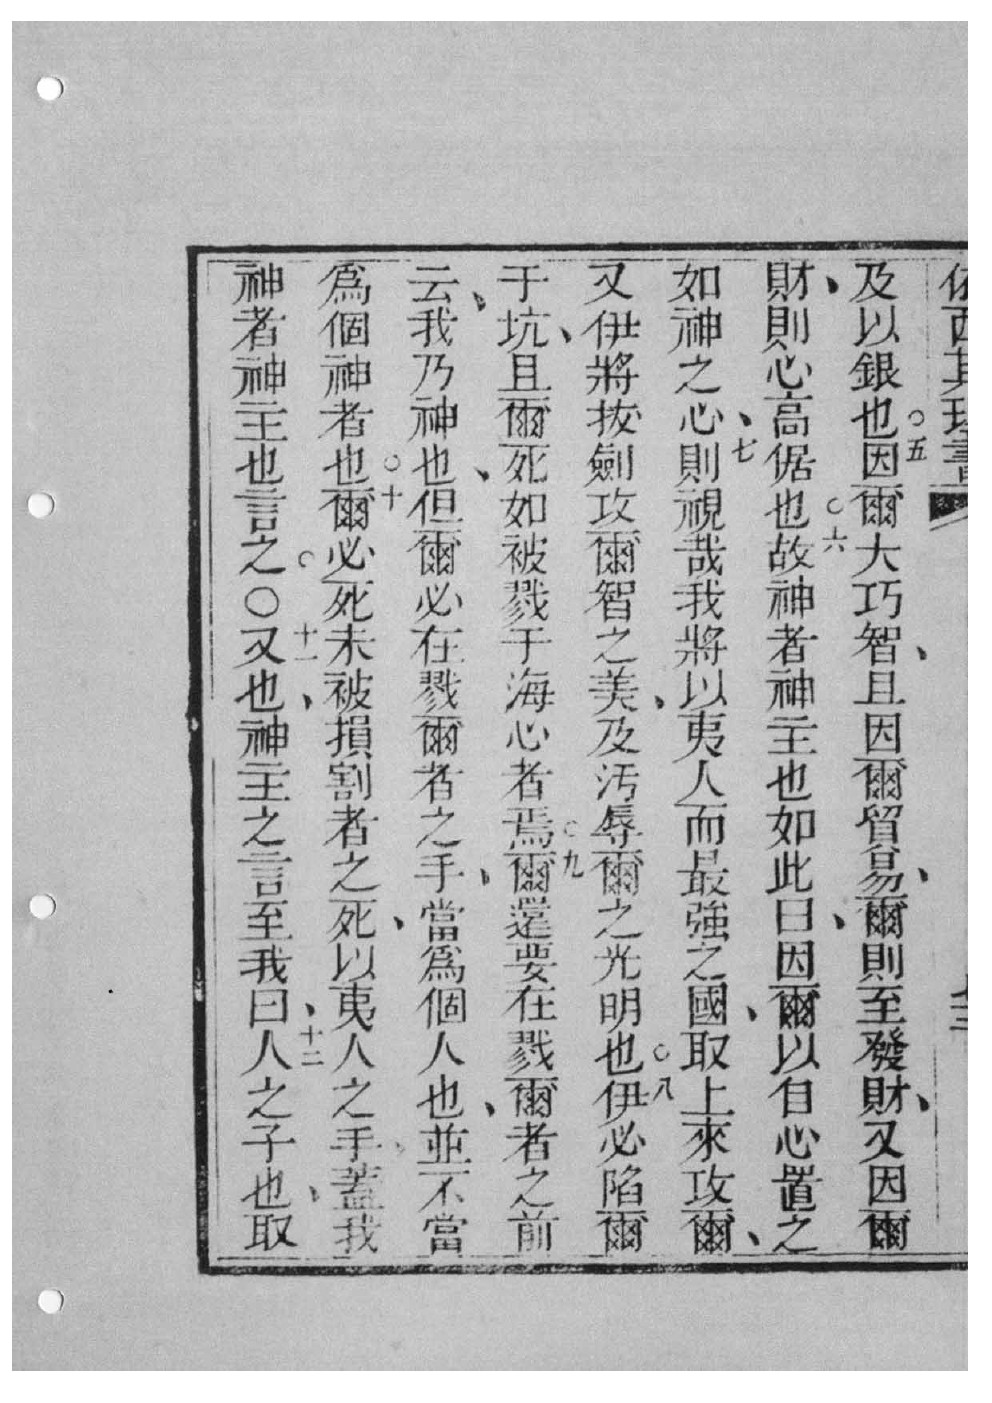 依西其理書
及以銀也○五因爾大巧智、且因爾貿易、爾則至發財、又因爾
財、則心高倨也○六故神者神主也如此曰、因爾以自心置之
如神之心、七則視哉我將以夷人而最強之國、取上來攻爾、
又伊將拔劍攻爾智之美、及汚辱爾之光明也○八伊必陷爾
于坑、且爾死如被戮于海心者焉○九爾還要在戮爾者之前
云、我乃神也、但爾必在戮爾者之手、當爲個人也、並不當
爲個神者也○十爾必死未被損割者之死、以夷人之手、蓋我
神者神主也言之○○十一又也、神主之言至我曰、十二人之子也、取